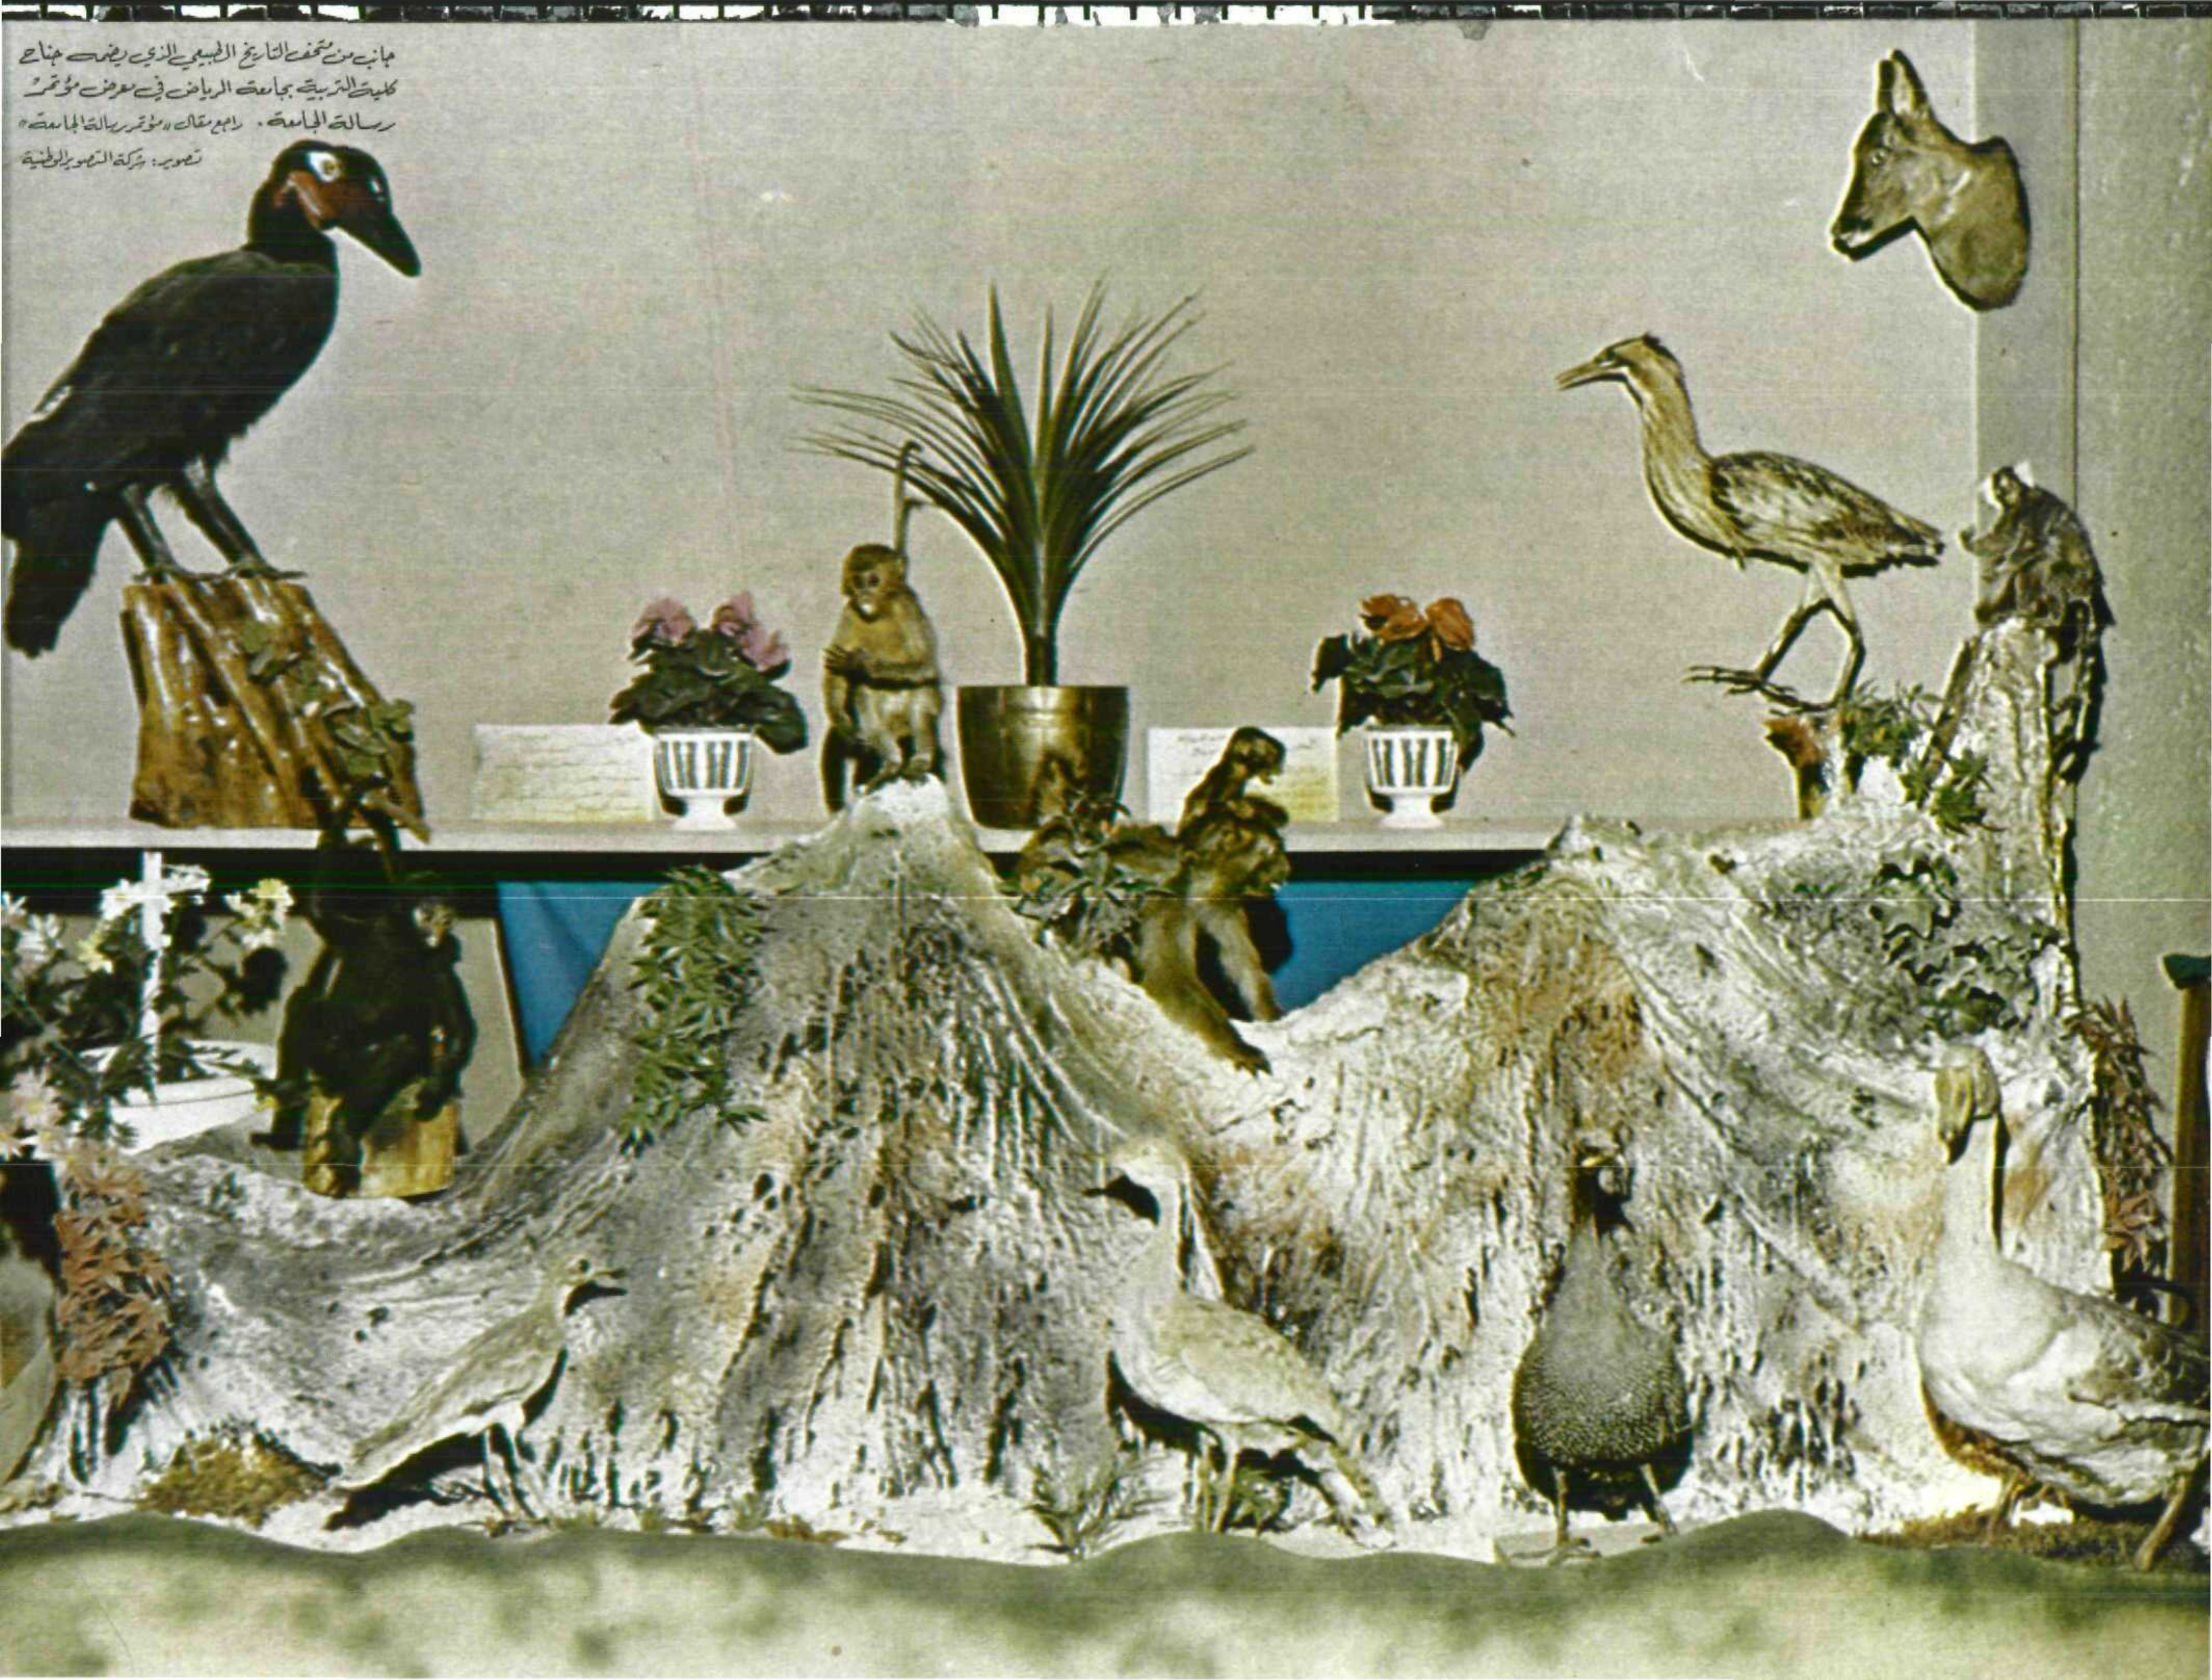 جانب من متحف التاريخ الطبيعي الذي يضمه جناح
كلية التربية بجامعة الرياض في معرض مؤتمر
رسالة الجامعة. راجع مقال «مؤتمر رسالة الجامعة»
تصوير: شركة التصوير الوطنية